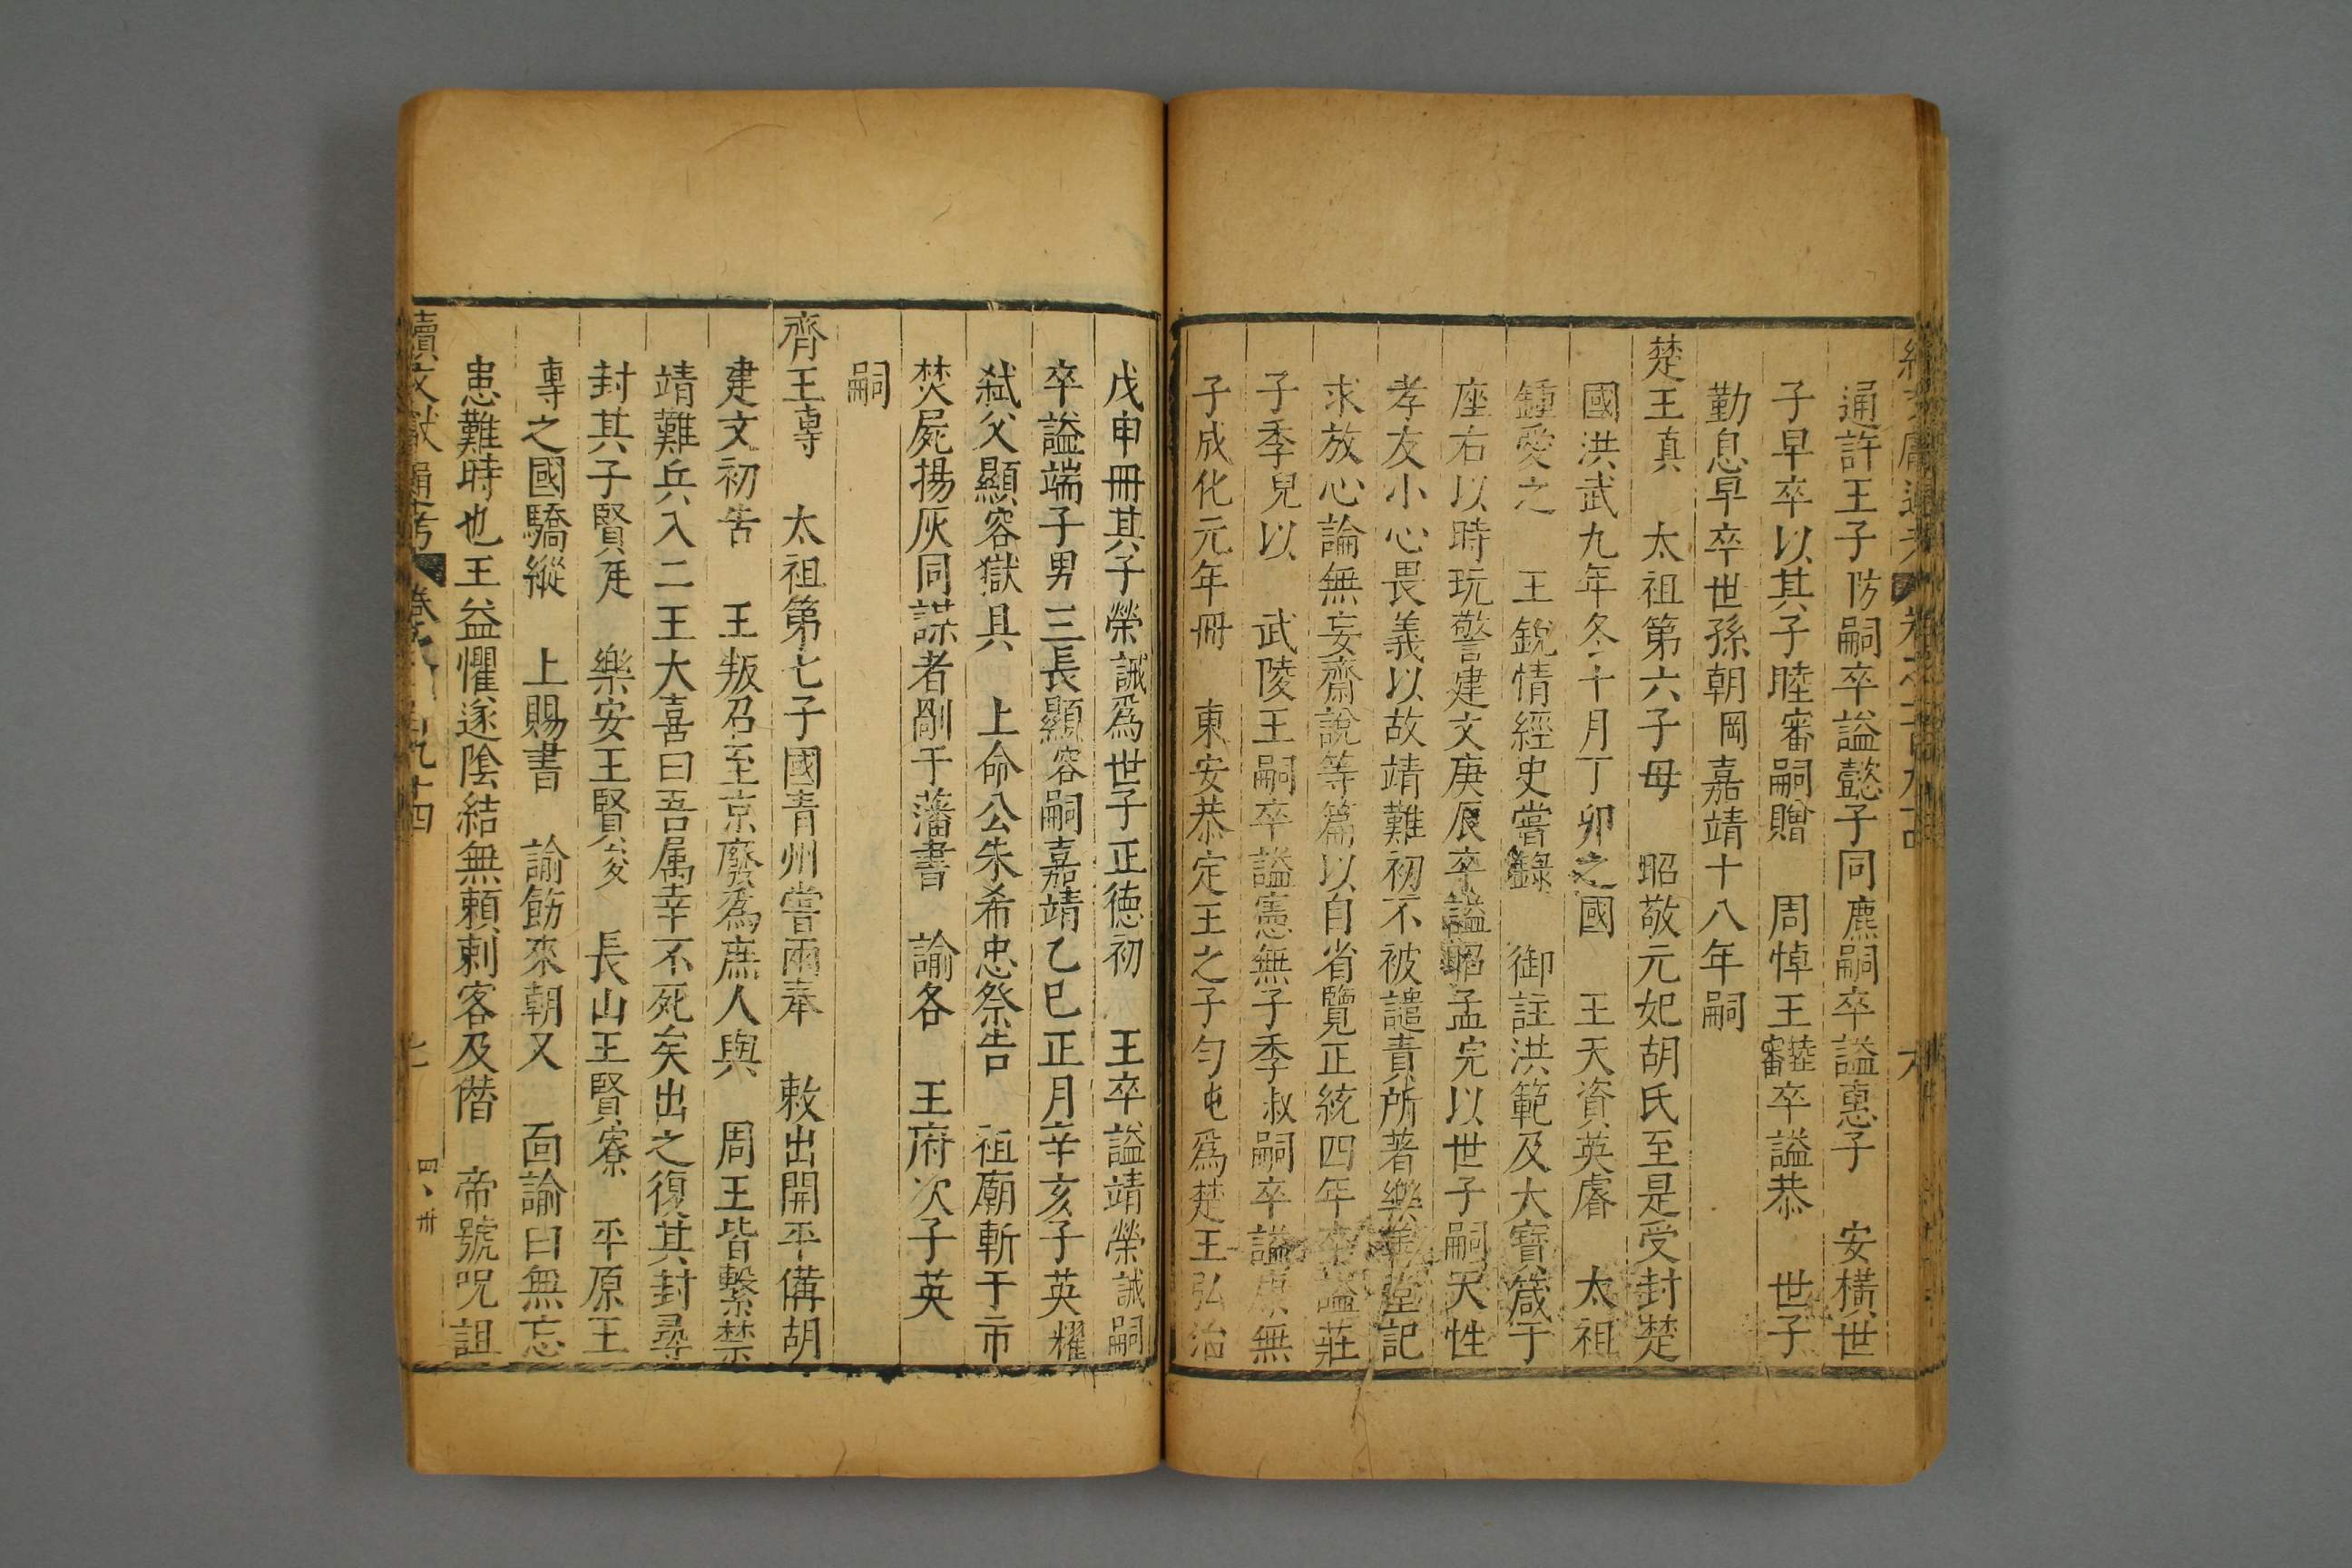 通許王子防嗣卒謚懿子同鹿嗣卒謚惠子　安橫世
子早卒以其子睦審嗣贈　周悼王睦審卒謚恭　世子
勤息早卒世孫朝岡嘉靖十八年嗣
楚王真　太祖第六子母　昭敬元妃胡氏至是受封楚
國洪武九年冬十月丁卯之國　王天資英睿　太祖
鍾愛之　王銳情經史嘗錄　御註洪範及大寶箴于
座右以時玩警建文庚辰卒謚昭孟完以世子嗣天性
孝友小心畏義以故靖難初不被譴責所著樂善堂記
求放心論無妄齋說等篇以自省覽正統四年卒謚莊
子季兒以　武陵王嗣卒謚憲無子季叔嗣卒謚康無
子成化元年冊　東安恭定王之子勻屯爲楚王弘治
戊申冊其子榮誡爲世子正德初　王卒謚靖榮誡嗣
卒謚端子男三長顯容嗣嘉靖乙巳正月辛亥子英燿
弑父顯容獄具　上命公朱希忠祭告　祖廟斬于市
焚屍揚灰同謀者剮于藩書　諭各　王府次子英
嗣
齊王專　太祖第七子國青州嘗兩奉　敕出開平備胡
建文初告　王叛召至京廢爲庶人與　周王皆繫禁
靖難兵入二王大喜曰吾属幸不死矣出之復其封尋
封其子賢　樂安王賢　長山王賢寮　平原王
專之國驕縱　上賜書　諭飭來朝又　面諭曰無忘
患難時也王益懼遂陰結無賴刺客及僭　帝號咒詛
續文獻通考　九十四　七